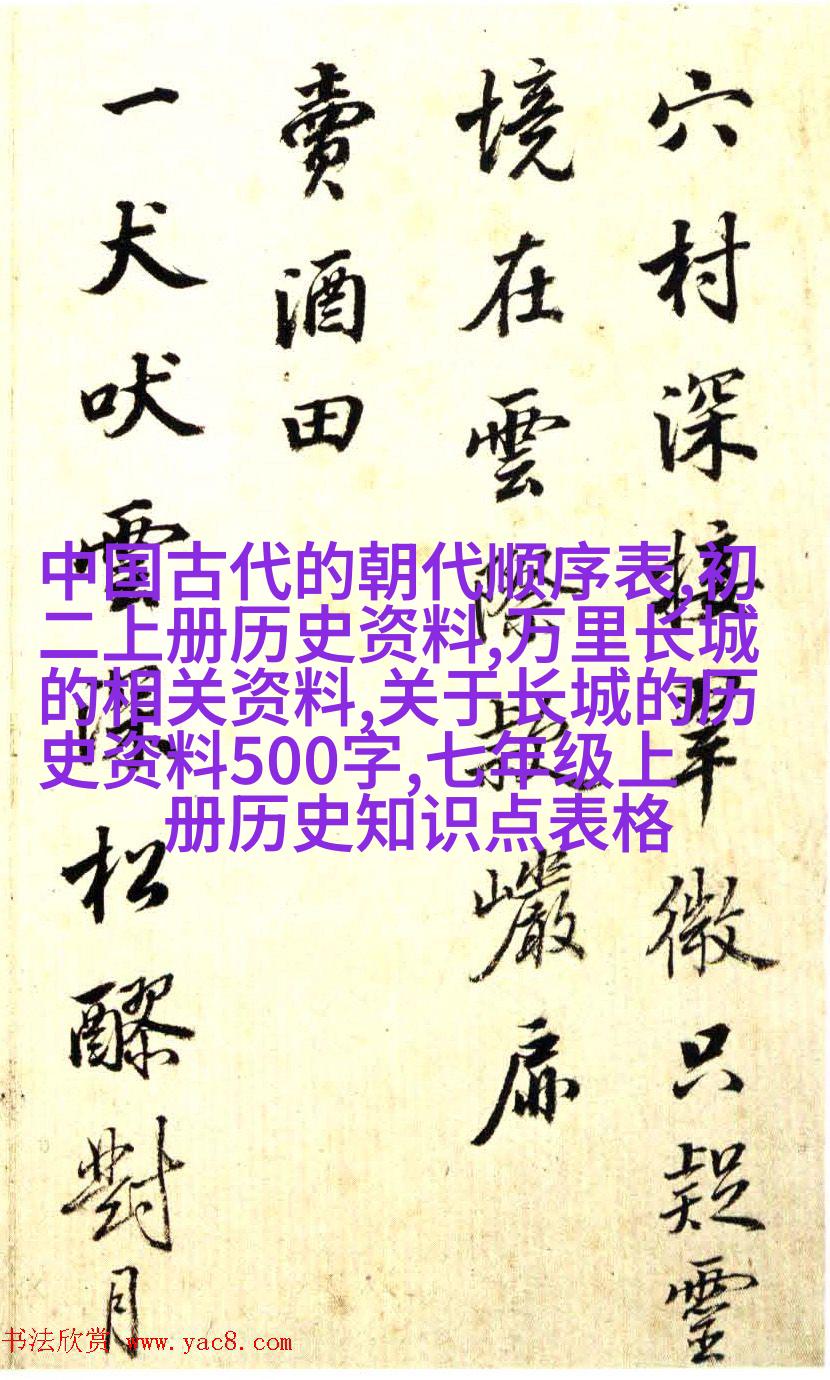 穴村深接翠微只疑靈
境在雲際敲巖扉
賣酒田
一犬吠雲深松醪對月
中国古代的朝代顺序表,初
二上册历史资料,万里长城
的相关资料,关于长城的历
史资料500字,七年级上
册历史知识点表格
书法欣赏 www.yac8.com